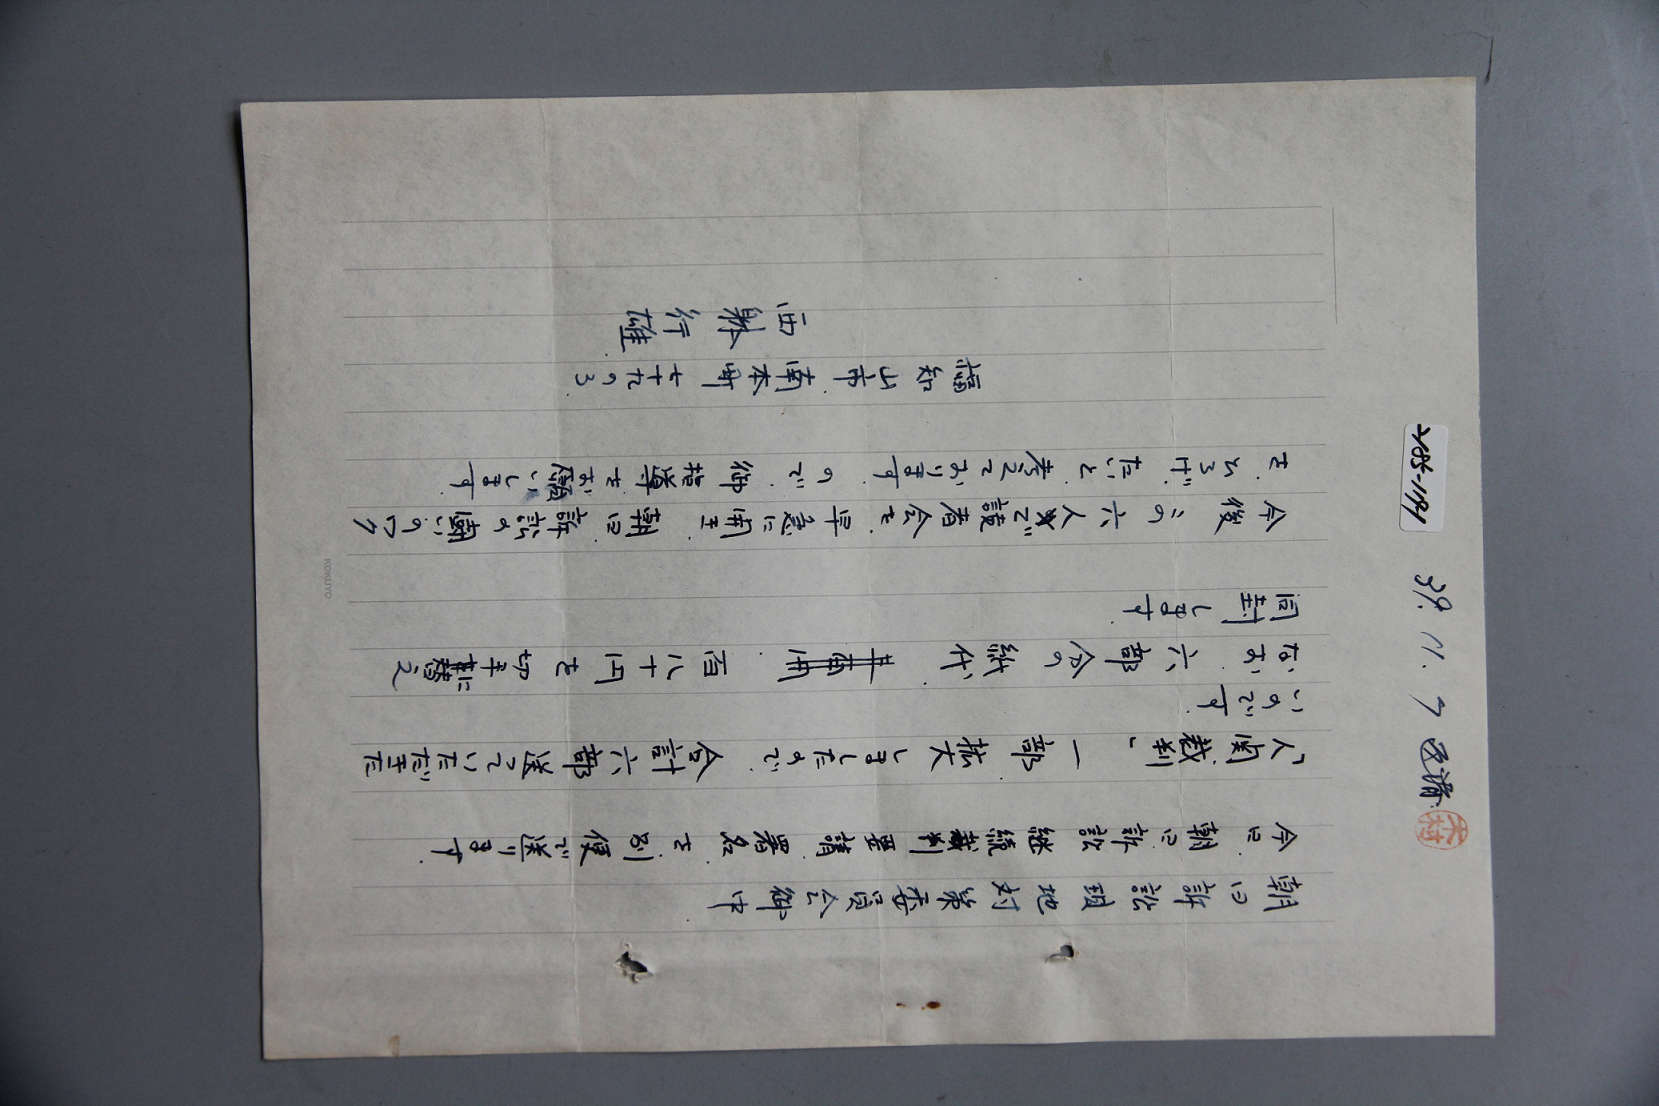 朝日訴訟現地対策委員会御中
今日、朝日訴訟継続裁判要請署名を別便で送ります。
「人間裁判」一部拡大しましたので、合計六部送っていただきた
いのです。
なお、六部分の代、百八十円を切手に替えて
同封します。
今後この六人で読者会を早急に開き、朝日訴訟の闘いの
をひろげたいと考えております。ので、御指導をお願いします。
福知山市南本町七十九の3
西躰行雄
2185-1191
39. 11. 9
木村
KOKUYO